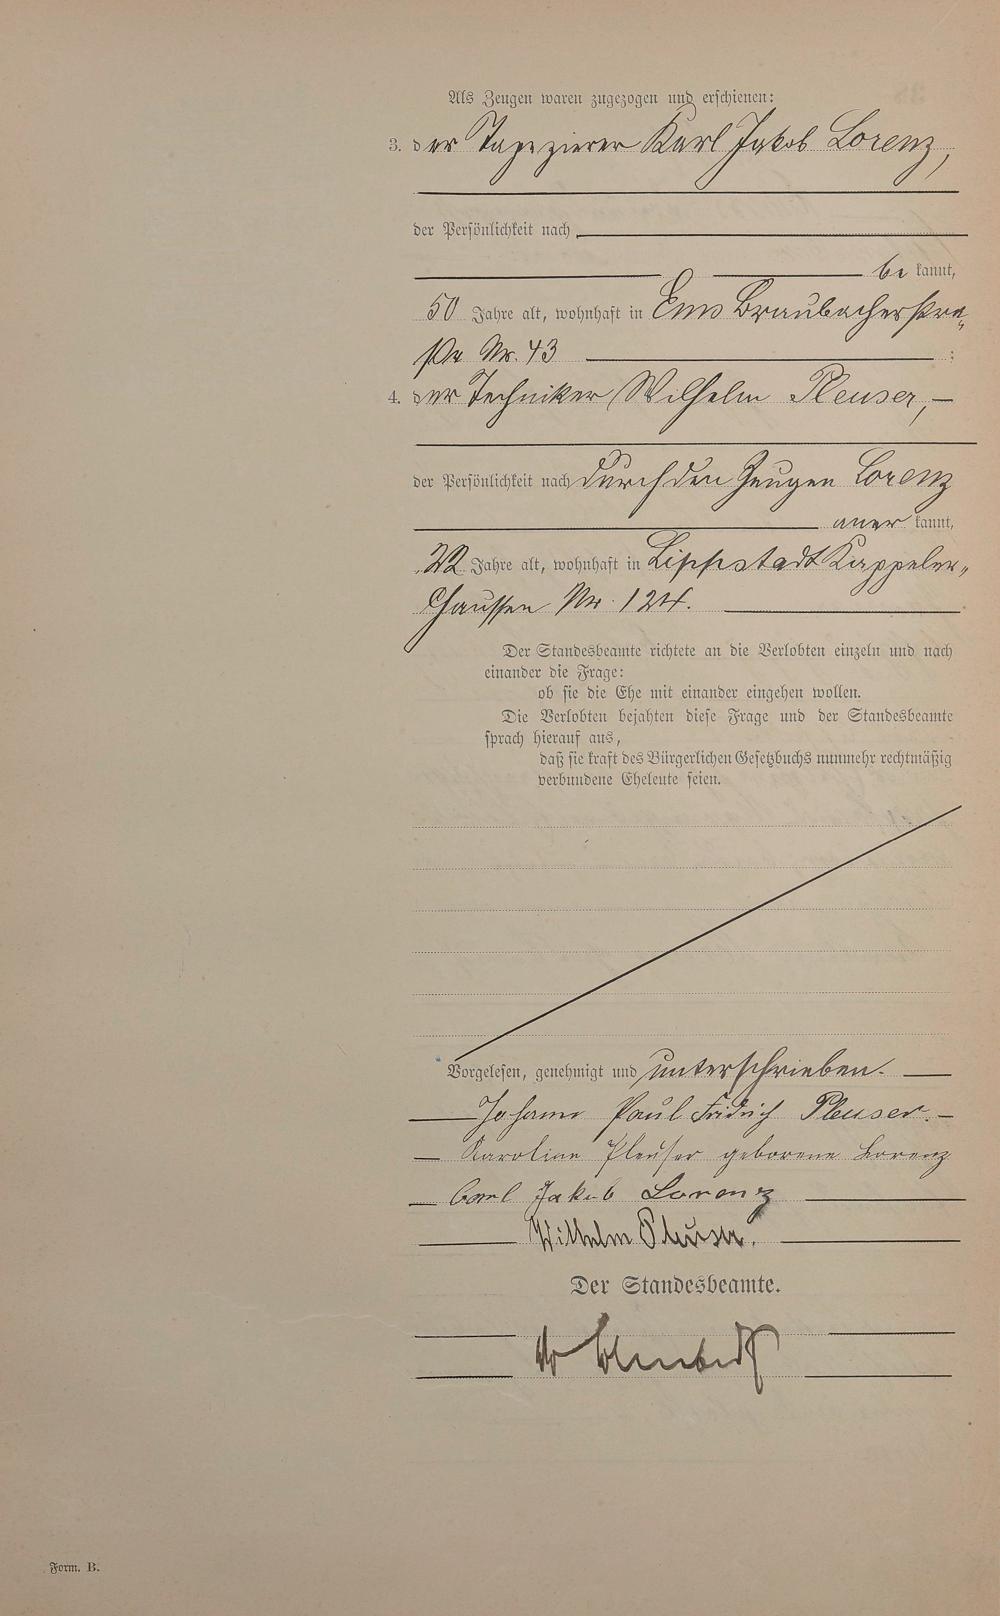 Als Zeugen waren zugezogen und erschienen:
3. der Tapezierer Karl Jakob Lorenz,
der Persönlichkeit nach
be kannt,
50 Jahre alt, wohnhaft in Ems Braubacherstra-
ße Nr. 43 ;
4. der Techniker Wilhelm Pleuser, —
der Persönlichkeit nach durch den Zeugen Lorenz
aner kannt,
22 Jahre alt, wohnhaft in Lippstadt Kappeler-
Chaussee Nr. 124.
Der Standesbeamte richtete an die Verlobten einzeln und nach
einander die Frage:
ob sie die Ehe mit einander eingehen wollen.
Die Verlobten bejahten diese Frage und der Standesbeamte
sprach hierauf aus,
daß sie kraft des Bürgerlichen Gesetzbuchs nunmehr rechtmäßig
verbundene Eheleute seien.
Vorgelesen, genehmigt und unterschrieben. —
Johann Paul Fridrich Pleuser. —
Karoline Pleuser geborene Lorenz
Carl Jakob Lorenz
Wilhelm Pleuser.
Der Standesbeamte.
Form. B.